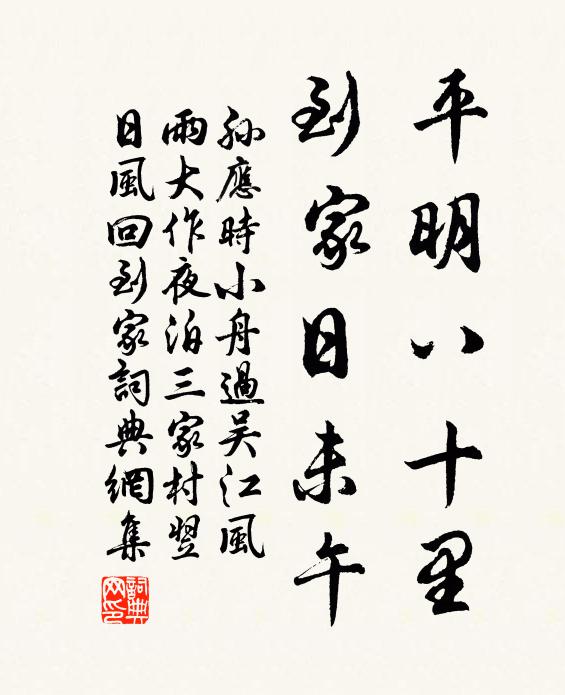 平明八十里
到家日未午
孫應時小舟過吴江風
雨大作夜泊三家村翌
日風回到家詞典網集
詞典
网印